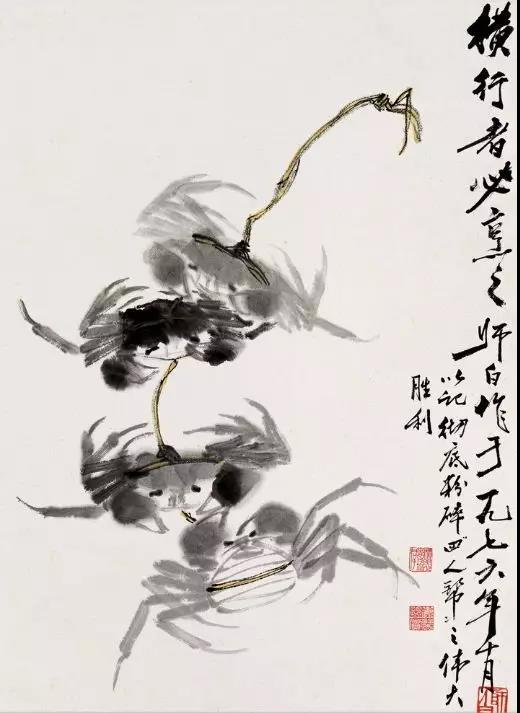 横行者必烹之师白作于一九七六年十月
以记彻底粉碎四人帮之伟大
胜利